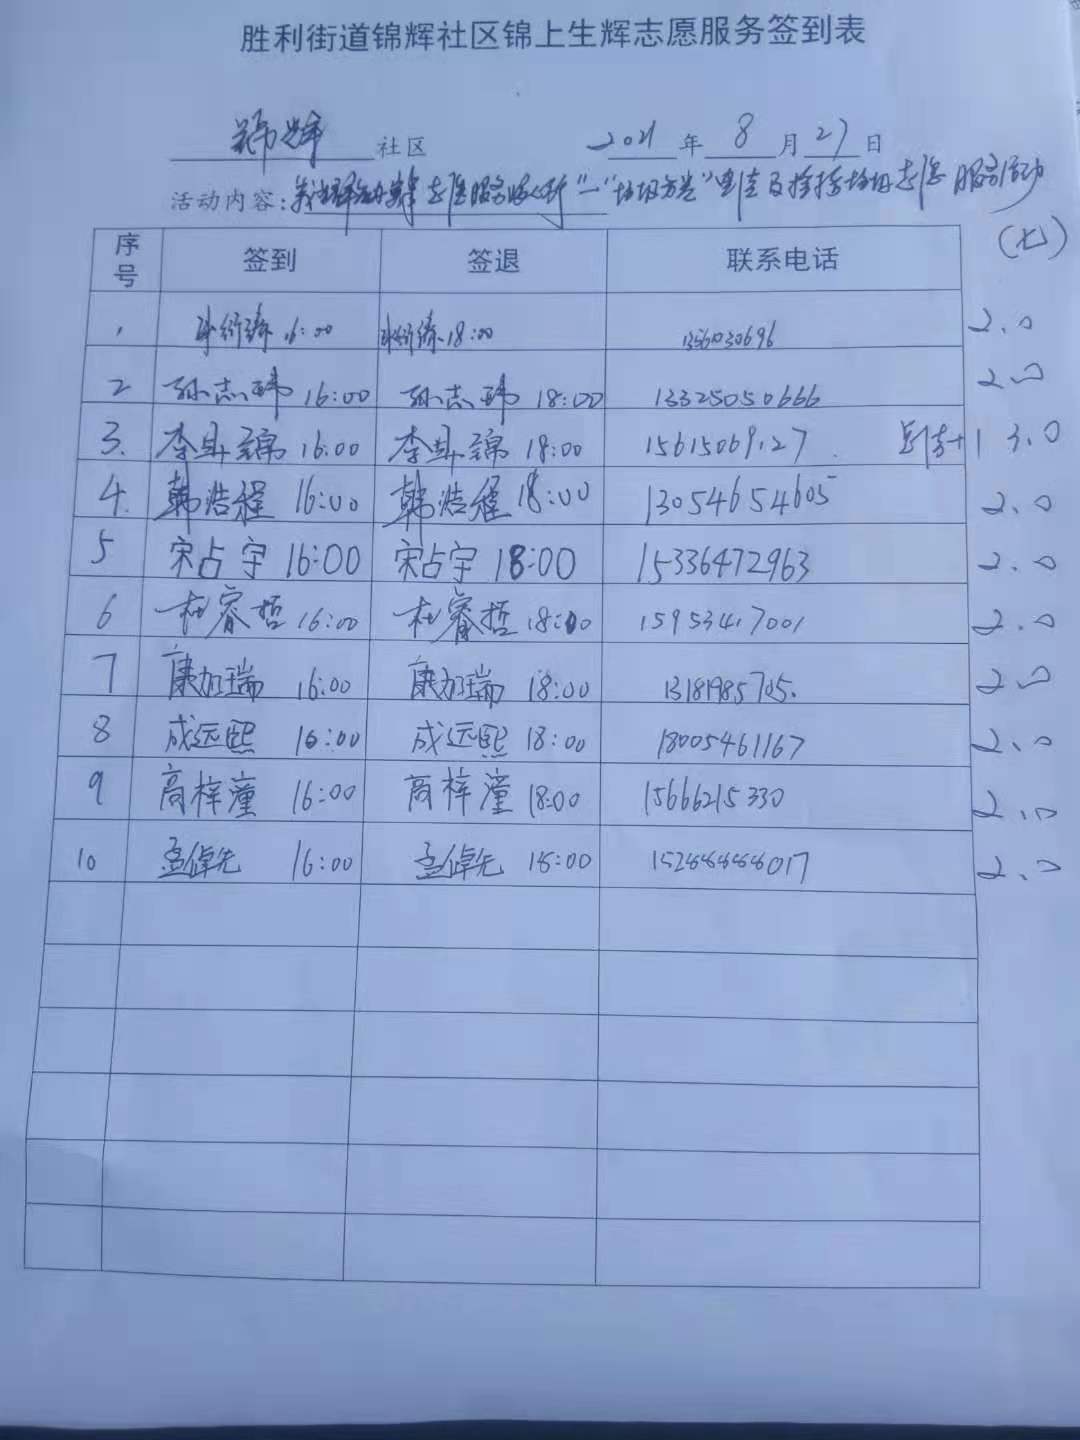 胜利街道锦辉社区锦上生辉志愿服务签到表
锦辉 社区 2021 年 8 月 27 日
活动内容: 志愿服务 "垃圾分类" 宣传及捡拾垃圾志愿服务活动
(七)
序号 签到 签退 联系电话
1 16:00 18:00 2.0
2 孙志玮 16:00 孙志玮 18:00 13325050666 2.0
3. 李昇锦 16:00 李昇锦 18:00 15615069127 +1 3.0
4. 韩浩程 16:00 韩浩程 18:00 13054654605 2.0
5 宋占宇 16:00 宋占宇 18:00 15336472963 2.0
6 杜睿哲 16:00 杜睿哲 18:00 15953417001 2.0
7 康加瑞 16:00 康加瑞 18:00 13181985705. 2.0
8 成远熙 16:00 成远熙 18:00 18005461167 2.0
9 高梓潼 16:00 高梓潼 18:00 15666215330 2.0
10 孟倬先 16:00 孟倬先 18:00 2.0